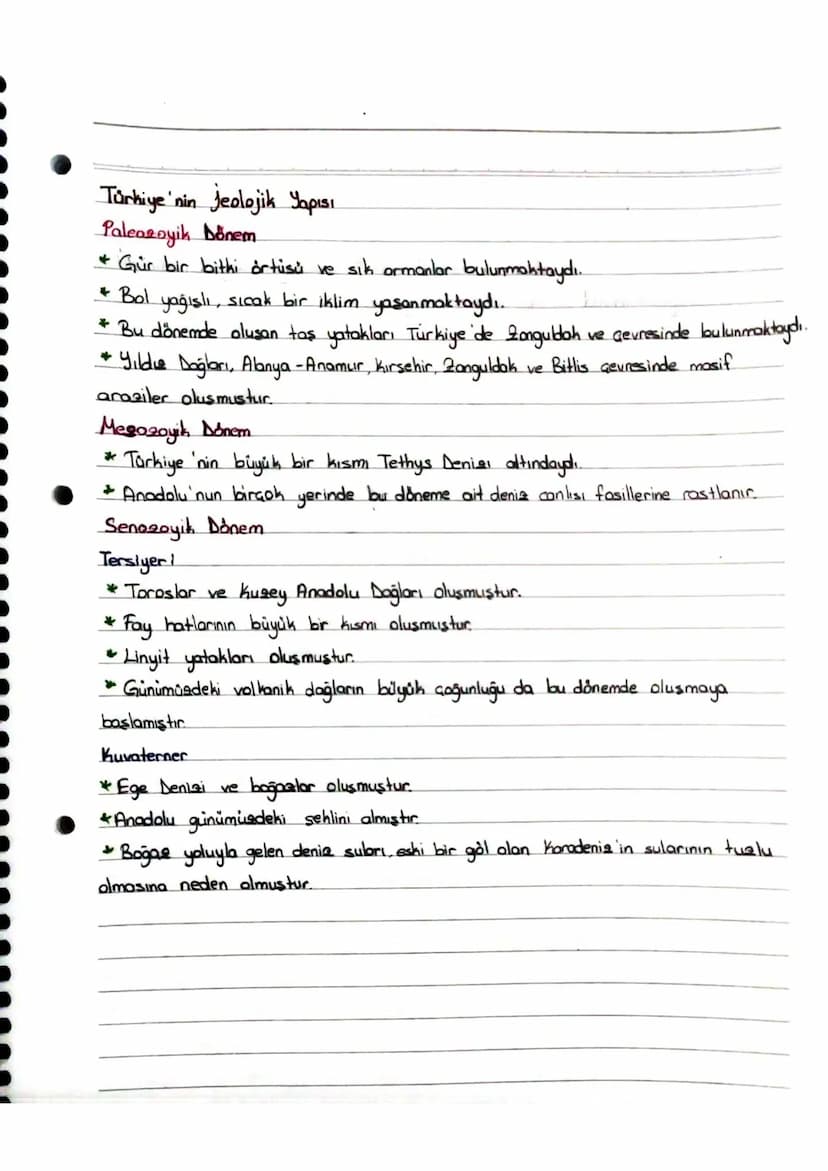 Türkiye'nin Jeolojik Yapısı
Paleozoyik Dönem
* Gür bir bitki örtüsü ve sık ormanlar bulunmaktaydı.
* Bol yağışlı, sıcak bir iklim yaşanmaktaydı.
* Bu dönemde oluşan taş yatakları Türkiye'de Zonguldak ve çevresinde bulunmaktaydı.
* Yıldız Dağları, Alanya-Anamur, Kırşehir, Zonguldak ve Bitlis çevresinde masif
araziler oluşmuştur.
Mezozoyik Dönem
* Türkiye'nin büyük bir kısmı Tethys Denizi altındaydı.
* Anadolu'nun birçok yerinde bu döneme ait deniz canlısı fosillerine rastlanır.
Senozoyik Dönem
Tersiyer!
* Toroslar ve Kuzey Anadolu Dağları oluşmuştur.
* Fay hatlarının büyük bir kısmı oluşmuştur.
* Linyit yatakları oluşmuştur.
* Günümüzdeki volkanik dağların büyük çoğunluğu da bu dönemde oluşmaya
başlamıştır.
Kuvaterner
* Ege Denizi ve boğazlar oluşmuştur.
* Anadolu günümüzdeki şeklini almıştır.
* Boğaz yoluyla gelen deniz suları, eski bir göl olan Karadeniz'in sularının tuzlu
olmasına neden olmuştur.